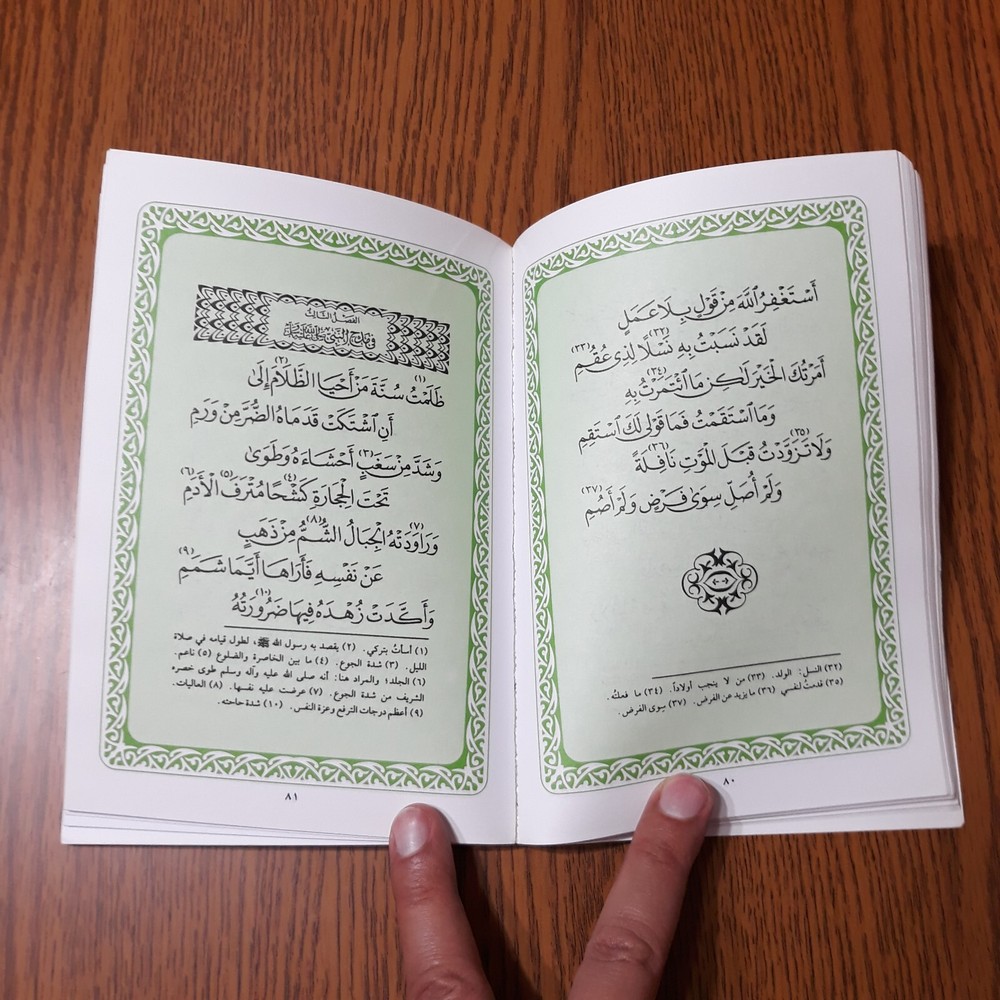 أَسْتَغْفِرُ اللَّهَ مِنْ قَوْلٍ بِلَا عَمَلٍ
لَقَدْ نَسَبْتُ بِهِ (٣٢) نَسْلًا لِذِي عُقُمِ (٣٣)
أَمَرْتُكَ الْخَيْرَ لَكِنْ مَا ائْتَمَرْتُ (٣٤) بِهِ
وَمَا اسْتَقَمْتُ فَمَا قَوْلِي لَكَ اسْتَقِمِ
وَلَا تَزَوَّدْتُ (٣٥) قَبْلَ الْمَوْتِ نَافِلَةً (٣٦)
وَلَمْ أُصَلِّ سِوَى فَرْضٍ وَلَمْ أَصُمِ (٣٧)
(٣٢) النسل: الولد. (٣٣) من لا ينجب أولاداً. (٣٤) ما فعلتُ.
(٣٥) قدمتُ لنفسي (٣٦) ما يزيد عن الفرض. (٣٧) سِوى الفرض.
٨٠
الفصل الثالث
في مدح النبي صلى الله عليه وسلم
ظَلَمْتُ (١) سُنَّةَ مَنْ أَحْيَا (٢) الظَّلَامَ إِلَى
أَنِ اشْتَكَتْ قَدَمَاهُ الضُّرَّ مِنْ وَرَمِ
وَشَدَّ مِنْ سَغَبٍ (٣) أَحْشَاءَهُ وَطَوَى
تَحْتَ الْحِجَارَةِ كَشْحًا (٤) مُتْرَفَ (٥) الْأَدَمِ (٦)
وَرَاوَدَتْهُ (٧) الْجِبَالُ الشُّمُّ (٨) مِنْ ذَهَبٍ
عَنْ نَفْسِهِ فَأَرَاهَا أَيَّمَا شَمَمِ (٩)
وَأَكَّدَتْ زُهْدَهُ فِيهَا ضَرُورَتُهُ (١٠)
(١) أسأتُ بتركي. (٢) يقصد به رسول الله ﷺ، لطول قيامه في صلاة
الليل. (٣) شدة الجوع. (٤) ما بين الخاصرة والضلوع (٥) ناعم.
(٦) الجلد؛ والمراد هنا: أنه صلى الله عليه وآله وسلم طوى خصره
الشريف من شدة الجوع. (٧) عرضت عليه نفسها. (٨) العاليات.
(٩) أعظم درجات الترفع وعزة النفس. (١٠) شدة حاجته.
٨١